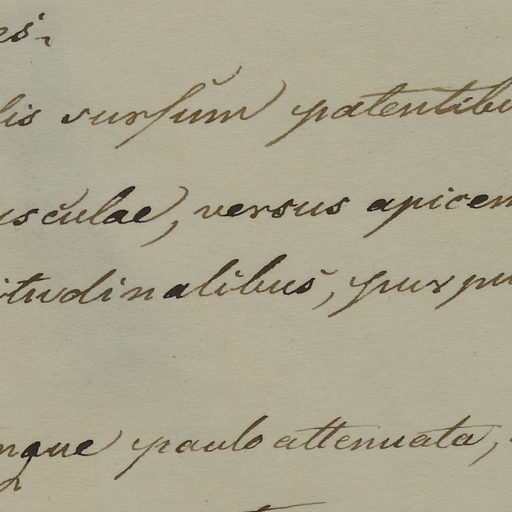 es.
lis surſŭm patentibu
usculae, versus apicem
itudinalibus, purpu
nque paulo attenuata,